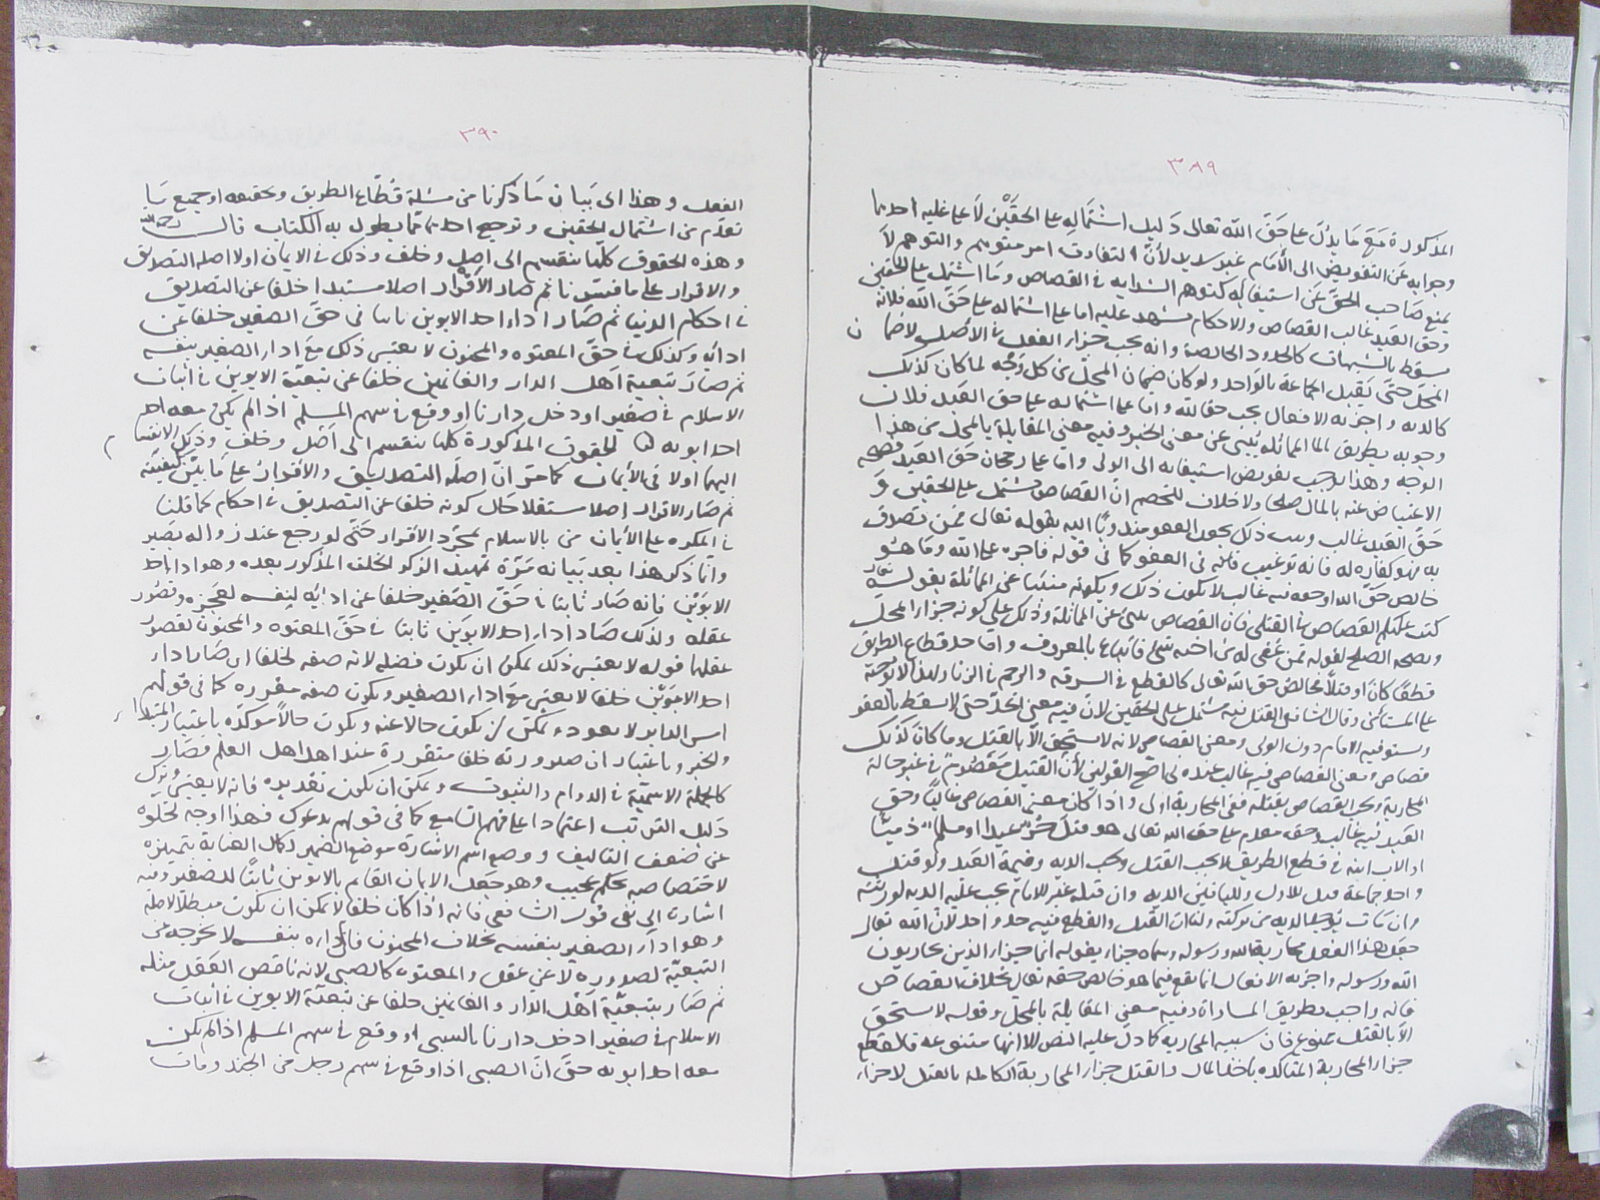 ٣٨٩
المذكورة مَعَ مَا يدُلّ على حَقّ الله تعالى دَليل اشتمَالِه على الحقَّيْن لَا على غلبه احدهما
وجوابه عن التفويض الى الأمَام غير سديد لأنّ التفاوت امر متوهم والتوهم لَا
يمنع صَاحب الحقّ عَن استيفائه كتوهم السّرايه في القصاص ومَا اشتمل على الحقين
وحق العَبد غالب القصاص والاحكام تشهد عليه اما على اشتماله على حَقّ الله فلانه
يسقط بالشبهات كالحدود الخالصة وانه يجب جزاء الفعل في الأصل لا ضمان
المحَلّ حتّى يقتل الجماعَة بالوَاحد ولو كان ضمان المحَلّ من كل وَجْه لما كان كذلك
كالديه واجزيه الافعال يجب حقا لله واما على اشتماله على حق العَبد فلان
وجوبه بطريق المماثله ينبى عن معنى الجبر وفيه معنى المقابلة بالمحل من هذا
الوجه وهذا يوجب تفويض استيفائه الى الولى وامّا على رجحان حَقّ العَبد فلصحه
الاعتياض عنه بالمال صلحا ولا خلاف للخصم انّ القصاص مشتمل على الحقين و
حَقّ العَبد غالب وسب ذلك بحون العفو مندوبًا اليه بقوله تعالى فَمَن تصدق
به فهو كفارة له فانه ترغيب في العفو كما في قوله فاجره على الله وَمَا هُو
خالص حَقّ الله او حقه فيه غالب لا يكون ذلك وبكونه منبئا عن المماثلة بقوله تعالى
كتب عليكم القصاص في القتلى فان القصاص ينبئ عن المماثلة وذلك على كونه جزاء المحلّ
وبصحه الصلح لقوله فمن عُفى له من اخيه شئ فاتباع بالمعروف وامّا حد قطاع الطريق
قطعًا كانَ او قتلًا فخالص حق الله تعالى كالقطع في السرقه والرجم في الزنا ولهذا لا نوجبه
على المستأمن وقال الشافعى القتل فيه مشتمل على الحقين لانّ فيه معنى الحدّ حتى لا يسقط بالعفو
ويستوفيه الامام دون الولى ومعنى القصاص لانه لا يستحق الّا بالقتل وما كانَ كذلك
قصاص ومعنى القصاص فيه غالب عنده في اصح القولين لأنّ القتيل معصُوم في غير حالة
المحاربة ويجب القصاص بقتله ففى المحاربة اولى واذا كان معنى القصاص غالبًا وحق
العَبد فيه غالب وحق مقدم على حق الله تعالى هو قتل حُرّ عبدا او مسلم ذميّا
او الاب ابنه في قطع الطريق لا يجب القتل وتجب الديه وقيمة العَبد ولو قتل
واحد جماعة قتل للاول وللباقين الديه وان قتله غير الامام يجب عليه الديه لورثته
وان مَات يُوجب الديه من تركته ولنا ان القتل والقطع فيه حد واحد لانّ الله تعالى
جعل هذا الفعل محاربة لله ورسوله وسماه جزاء بقوله انما جزاء الذين يحاربون
الله ورسوله واجزيه الافعال انما تقع فيما هو خالص حقه تعالى بخلاف القصاص
فانه واجب بطريق المساواة وفيه معنى المقابلة بالمحلّ وقوله لا يستحق
الّا بالقتل ممنوع فان سببه المحاربه كما دل عليه النص الا انها متنوعه فالقطع
جزاء المحاربة المتاكده باخذ المال والقتل جزاء المحاربة الكاملة بالقتل لا جزاء
٣٩٠
الفعل وهذا اى بَيَا ن مَا ذكرنا من مسئلة قُطّاع الطريق وتحقيقه او جميع مَا
تقدّم من اشتمال الحقين وترجيح احدهما ممّا يطول به الكتاب قال رحمه الله
وهذه الحقوق كلّها تنقسم الى اصل وخلف وذلك في الايمان اولا اصله التصديق
والاقرار على مَا فسّرنا ثم صَار الاقْرار اصلا مستبدا خلفا عن التصديق
في احكام الدنيا ثم صَار اداء احد الابوين ثابتا في حقّ الصغير خلفا عن
ادائه وكذلك في حَقّ المعتوه والمجنون لا يعتبر ذلك مَع اداء الصغير بنفسه
ثم صَارَ تبعية اَهل الدار والغانمين خلفا عن تبعيّة الابوين في اثبات
الاسلام في صغير ادخل دارنا او وقع في سهم المسلم اذا لم يكن معه احد
احد ابويه ش الحقوق المذكورة كلها تنقسم الى اَصْل وخلف وذلك الانقسام
اليهما اولا في الأيمان كما مَرّ انّ اصلَه التصديق والأقرار على مَا بيّنّا كيفيته
ثم صَار الاقرار اصلا مستقلا حَال كونه خلفا عن التصديق في احكام كما قلنا
في المكره على الأيمان من بالاسلام بمجرّد الأقرار حَتّى لو رجع عند زواله يصير
وانّما ذكر هذا بعد بَيَانه مَرّة تمهيد الذكر الخلف المذكور بعده وهو اداء احد
الابوَيْن فانه صَار ثابتا في حَقّ الصَّغير خلفا عن ادائه لنفسه لعجزه وقصُور
عقله وكذلك صَار اداء احد الابوَين ثابتا في حَقّ المعتوه والمجنون لقصور
عقلهما قوله لا يعتبر ذلك يمكن ان يكون فضله لانه صفه لخلفا اى صَار اداء
احد الابوَيْن خلفا لا يعتبر مَع اداء الصغير ويكون صفه مقرره كما في قولهم
امس الدابر لا يعود ويمكن ان يكون حالا عنه ويكون حالًا موكّده باعتبار المبتدا
والخبر وباعتبار ان صيرورته خلفا متقررة عند اهل العلم فصَار
كالجملة الاسميّة في الدوام والثبوت ويمكن ان يكون تقديره فانه لا يعتبر وترك
دَليل الترتب اعتمادا على فهم السّامع كما في قولهم يدعوك فهذا اوجه لخلوه
عن ضعف التاليف ووضع اسم الاشارة موضع الضمير لكال العناية بتمييزه
لاختصاصه بحكم عجيب وهو جَعْل الايمان القائم بالابوين ثابتًا للصغير وفيه
اشارة الى نفى قول الشافعى فانه اذا كان خلفا لا يمكن ان يكون مبطلا لاصله
وهو اداء الصغير بنفسه بخلاف المجنون فان اداه بنفسه لا يخرجه عن
التبعيّة لصدوره لا عن عقل والمعتوه كالصبى لانه ناقص العَقل مثله
ثم صَار تبعيّة اَهْل الدار والغانمين خلفا عن تبعيّة الابوين في اثبات
الاسلام في صغير ادخل دارنا بالسبى او وقع في سهم المسلم اذا لم يكن
معه احد ابويه حَتّى انّ الصبى اذا وقع في سهم رجل من الجند ومات